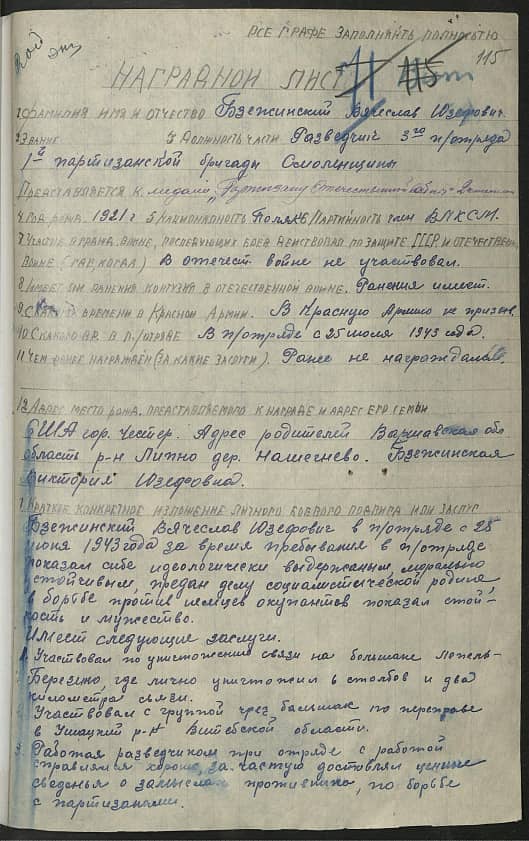 ВСЕ ГРАФЕ ЗАПОЛНЯТЬ ПОЛНОСТЬЮ
115
НАГРАДНОЙ ЛИСТ
1 ФАМИЛИЯ ИМЯ И ОТЧЕСТВО Бзежинский Вячеслав Юзефович.
2 ЗВАНИЕ 3 ДОЛЖНОСТЬ ЧАСТИ Разведчик 3го п/отряда
1й партизанской бригады Смоленщины
ПРЕДСТАВЛЯЕТСЯ К медали „Партизану Отечественной войны" 2 степени
4 ГОД РОЖД. 1921 г 5 НАЦИОНАЛЬНОСТЬ Поляк 6 ПАРТИЙНОСТЬ член ВЛКСМ.
7 УЧАСТИЕ В ГРАЖД. ВОЙНЕ, ПОСЛЕДУЮЩИХ БОЕВ ДЕЙСТВ ПО ЗАЩИТЕ СССР И ОТЕЧЕСТВЕН
ВОЙНЕ (ГДЕ, КОГДА) В отечест. войне не участвовал.
8 ИМЕЕТ ЛИ РАНЕНИЯ КОНТУЗИЯ В ОТЕЧЕСТВЕННОЙ ВОЙНЕ. Ранения имеет.
9 С ВРЕМЕНИ В КРАСНОЙ АРМИИ. В Красную Армию не призыв.
10 С КАКОГО ВР. В П/ОТРЯДЕ В п/отряде с 25 июля 1943 года.
11 ЧЕМ РАНЕЕ НАГРАЖДЕН (ЗА КАКИЕ ЗАСЛУГИ). Ранее не награждался.
12 АДРЕС МЕСТО РОЖД. ПРЕДСТАВЛЯЕМОГО К НАГРАДЕ И АДРЕС ЕГО СЕМЬИ
США гор. Честер. Адрес родителей Варшавская обл
область р-н Липно дер. Бзежинская
Виктория Юзефовна.
КРАТКОЕ КОНКРЕТНОЕ ИЗЛОЖЕНИЕ ЛИЧНОГО БОЕВОГО ПОДВИГА ИЛИ ЗАСЛУГ
Бзежинский Вячеслав Юзефович в п/отряде с 25
июня 1943 года за время пребывания в п/отряде
показал себе идеологически выдержаным, морально
устойчивым, предан делу социалистической родине,
в борьбе против немцев окупантов показал стой-
кость и мужество.
Имеет следующие заслуги.
1. Участвовал по уништожению связи на большаке Лепель-
Березино, где лично уничтожил 8 столбов и два
километра связи.
2. Участвовал с группой чрез большак по переправе
в Ушацкий р-н Витебской области.
3. Работая разведчиком при отряде с работой
справлялся хорошо, за частую доставлял ценные
сведенья о замыслах противника, по борьбе
с партизанами.